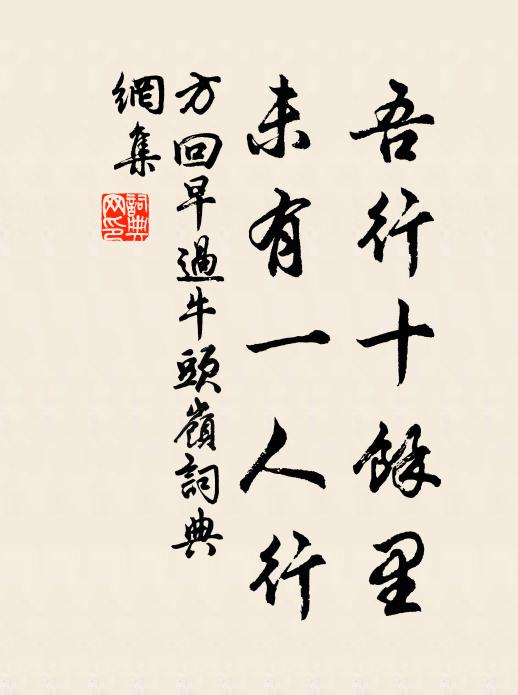 吾行十餘里
未有一人行
方回早過牛頭嶺詞典
網集
詞典
网印